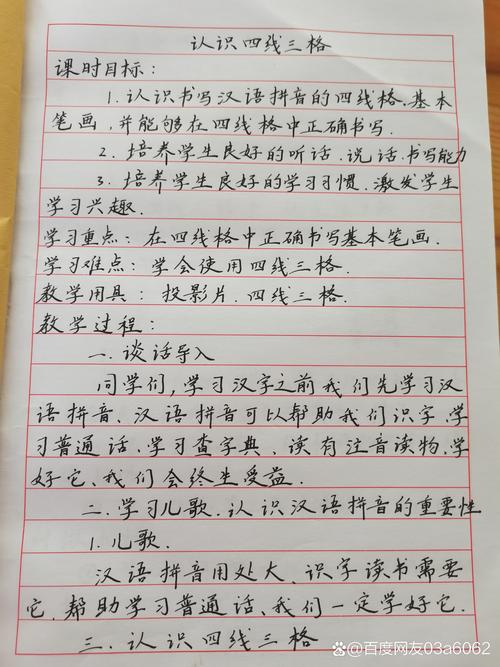 认识四线三格
课时目标:
1.认识书写汉语拼音的四线格.基本
笔画,并能够在四线格中正确书写.
2.培养学生良好的听话.说话.书写能力
3.培养学生良好的学习习惯.激发学生
学习兴趣.
学习重点:在四线格中正确书写基本笔画.
学习难点:学会使用四线三格.
教学用具:投影片.四线三格.
教学过程:
一.谈话导入
同学们,学习汉字之前我们先学习汉
语拼音.汉语拼音可以帮助我们识字.学
习普通话.学习查字典.读有注音读物.学
好它、我们会终生受益.
二.学习儿歌.认识汉语拼音的重要性
1.儿歌.
汉语拼音用处大、识字读书需要
它.帮助学习普通话、我们一定学好它.
三.认识四线三格
百度网友03a6062